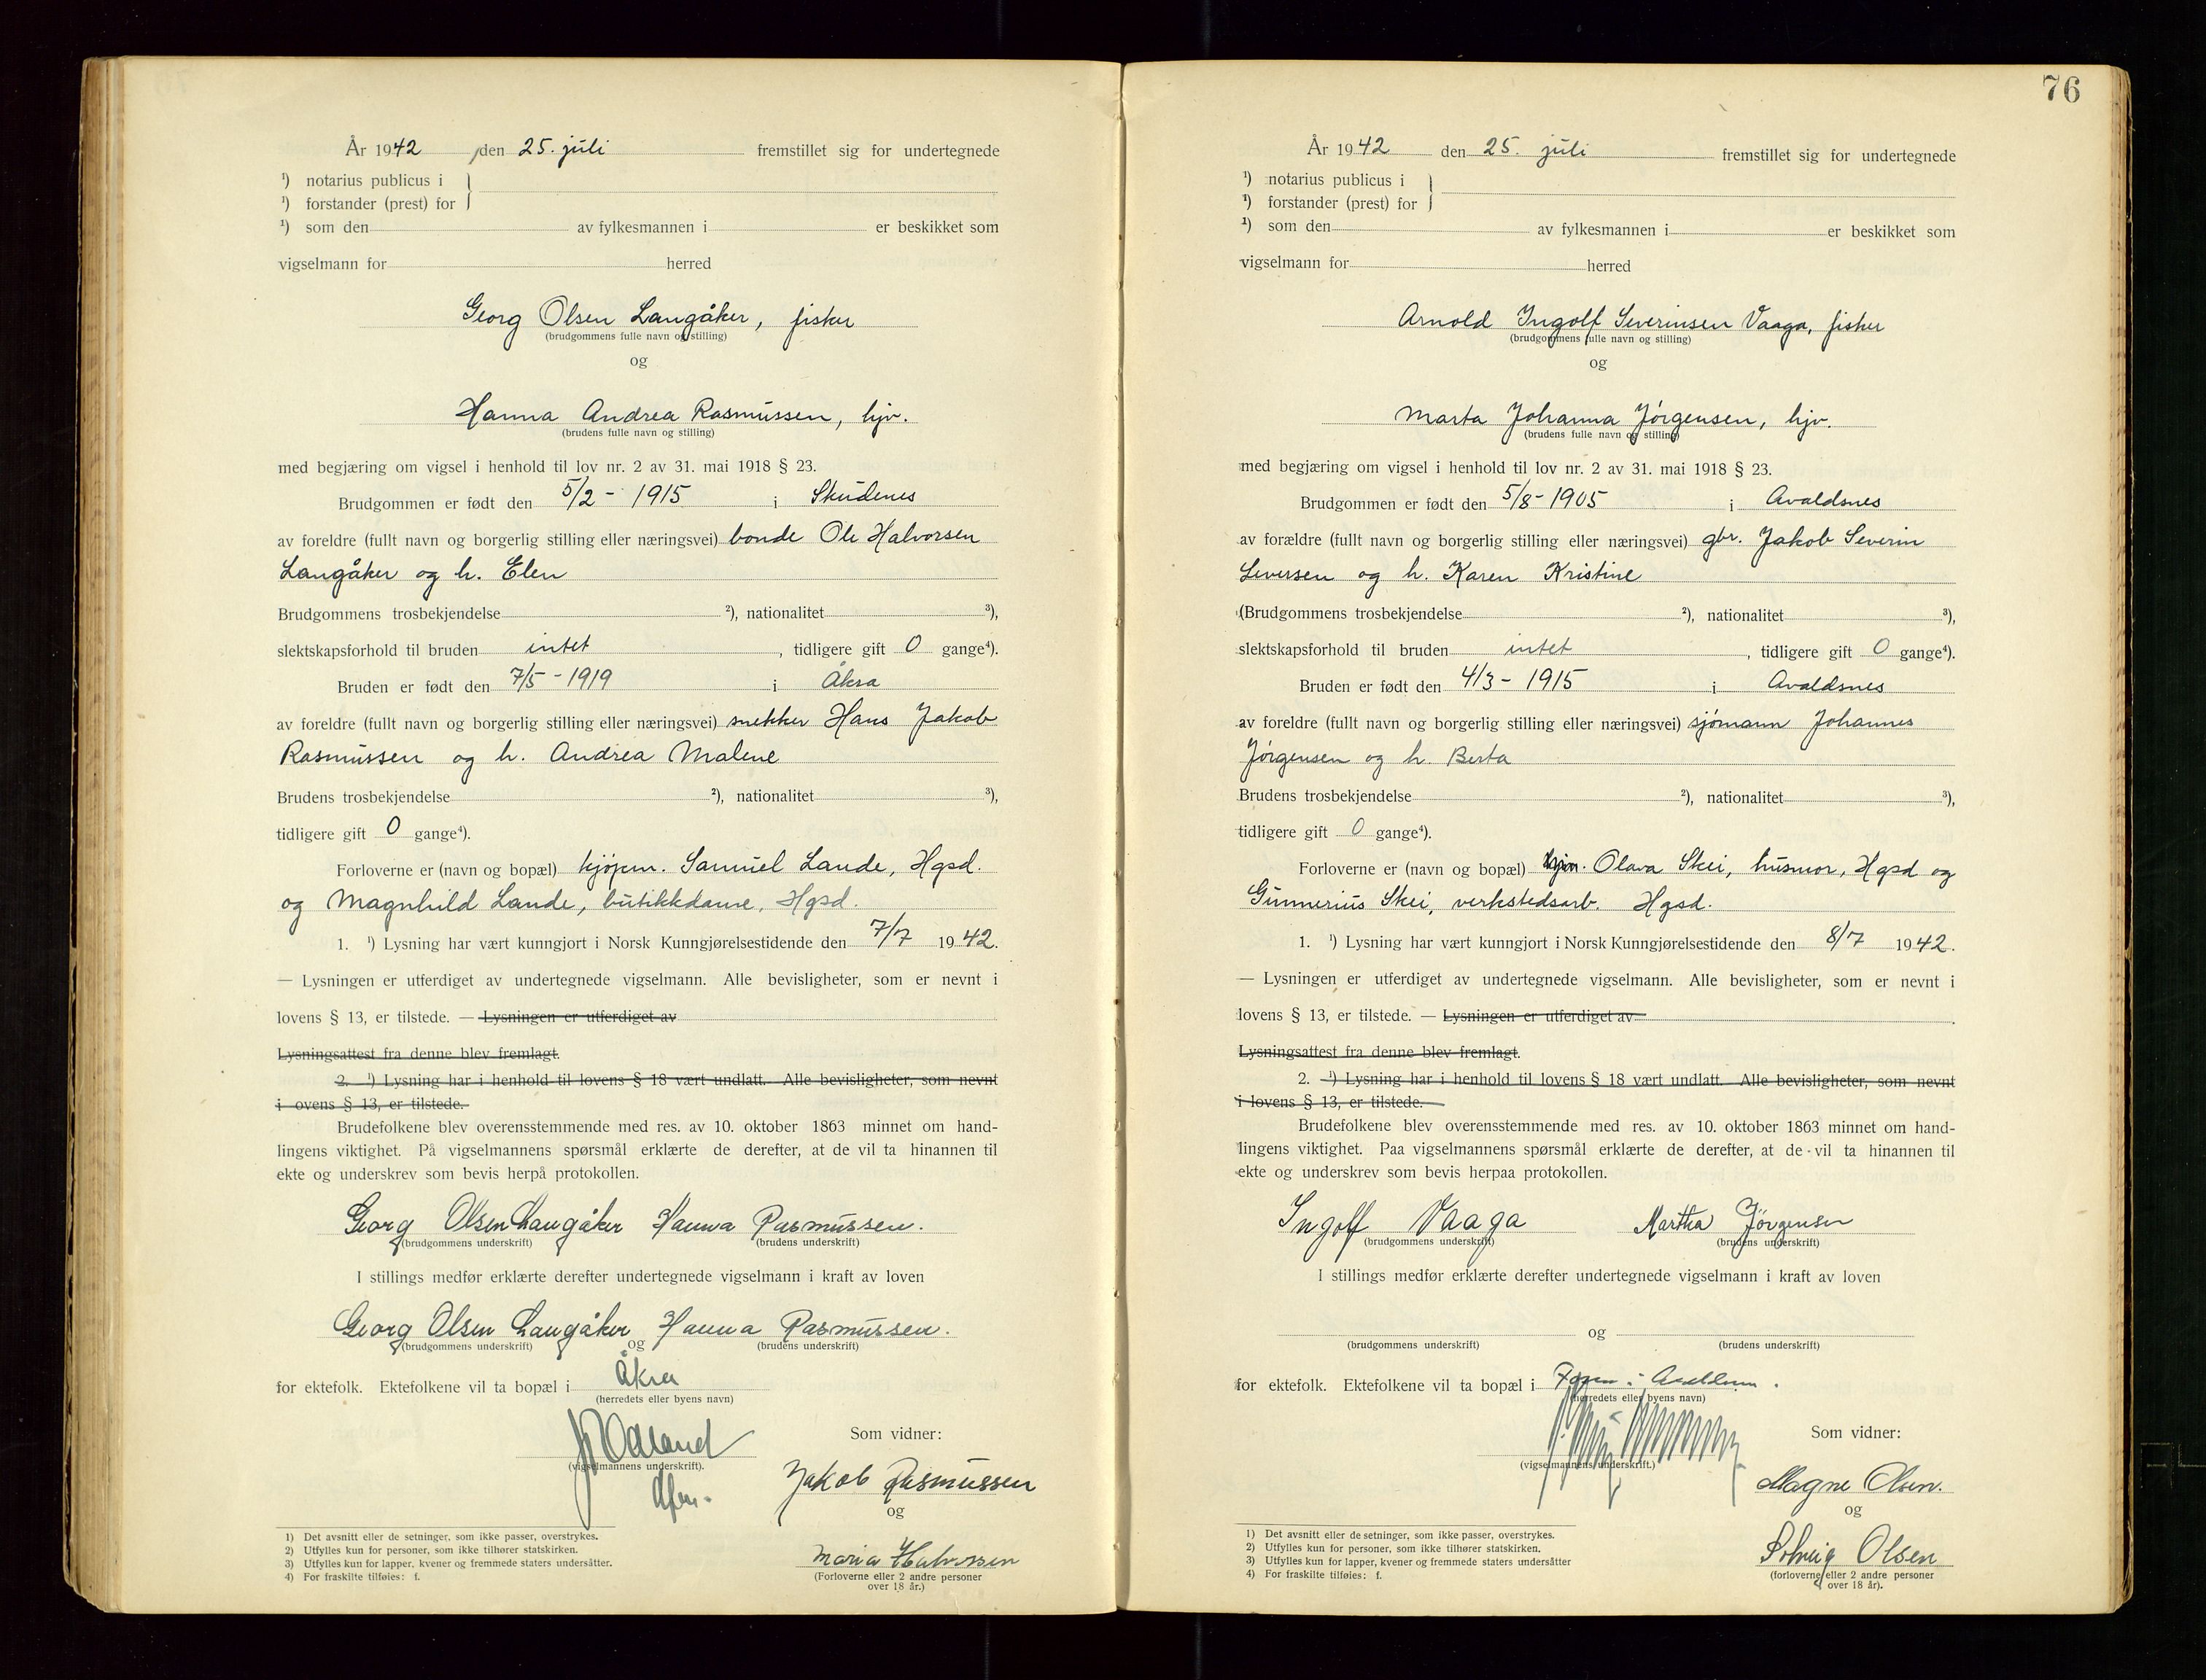 År 1942 den 25. juli fremstillet sig for undertegnede
¹) notarius publicus i
¹) forstander (prest) for
¹) som den av fylkesmannen i er beskikket som
vigselmann for herred
Georg Olsen Langåker, fisker
(brudgommens fulle navn og stilling)
og
Hanna Andrea Rasmussen, hjv.
(brudens fulle navn og stilling)
med begjæring om vigsel i henhold til lov nr. 2 av 31. mai 1918 § 23.
Brudgommen er født den 5/2 - 1915 i Skudenes
av foreldre (fullt navn og borgerlig stilling eller næringsvei) bonde Ole Halvorsen
Langåker og h. Elen
Brudgommens trosbekjendelse ²), nationalitet ³),
slektskapsforhold til bruden intet, tidligere gift 0 gange⁴).
Bruden er født den 7/5 - 1919 i Åkra
av foreldre (fullt navn og borgerlig stilling eller næringsvei) snekker Hans Jakob
Rasmussen og h. Andrea Malene
Brudens trosbekjendelse ²), nationalitet ³),
tidligere gift 0 gange⁴).
Forloverne er (navn og bopæl) kjøpm. Samuel Lande, Hgsd.
og Magnhild Lande, butikkdame, Hgsd.
1. ¹) Lysning har vært kunngjort i Norsk Kunngjørelsestidende den 7/7 1942.
— Lysningen er utferdiget av undertegnede vigselmann. Alle bevisligheter, som er nevnt i
lovens § 13, er tilstede. — Lysningen er utferdiget av
Lysningsattest fra denne blev fremlagt.
2. ¹) Lysning har i henhold til lovens § 18 vært undlatt. Alle bevisligheter, som nevnt
i ovens § 13, er tilstede.
Brudefolkene blev overensstemmende med res. av 10. oktober 1863 minnet om hand-
lingens viktighet. På vigselmannens spørsmål erklærte de derefter, at de vil ta hinannen til
ekte og underskrev som bevis herpå protokollen.
Georg Olsen Langåker Hanna Rasmussen.
(brudgommens underskrift) (brudens underskrift)
I stillings medfør erklærte derefter undertegnede vigselmann i kraft av loven
Georg Olsen Langåker og Hanna Rasmussen.
(brudgommens underskrift) (brudens underskrift)
for ektefolk. Ektefolkene vil ta bopæl i Åkra
(herredets eller byens navn)
Odland
Som vidner:
(vigselmannens underskrift).
Jakob Rasmussen
og
Maria Halvorsen
(Forloverne eller 2 andre personer
over 18 år.)
1) Det avsnitt eller de setninger, som ikke passer, overstrykes.
2) Utfylles kun for personer, som ikke tilhører statskirken.
3) Utfylles kun for lapper, kvener og fremmede staters undersåtter.
4) For fraskilte tilføies: f.
76
År 1942 den 25. juli fremstillet sig for undertegnede
¹) notarius publicus i
¹) forstander (prest) for
¹) som den av fylkesmannen i er beskikket som
vigselmann for herred
Arnold Ingolf Severinsen Vaaga, fisker
(brudgommens fulle navn og stilling)
og
Marta Johanna Jørgensen, hjv.
(brudens fulle navn og stilling)
med begjæring om vigsel i henhold til lov nr. 2 av 31. mai 1918 § 23.
Brudgommen er født den 5/8 - 1905 i Avaldsnes
av forældre (fullt navn og borgerlig stilling eller næringsvei) gbr. Jakob Severin
Seversen og h. Karen Kristine
(Brudgommens trosbekjendelse ²), nationalitet ³),
slektskapsforhold til bruden intet, tidligere gift 0 gange⁴).
Bruden er født den 4/3 - 1915 i Avaldsnes
av foreldre (fullt navn og borgerlig stilling eller næringsvei) sjømann Johannes
Jørgensen og h. Berta
Brudens trosbekjendelse ²), nationalitet ³),
tidligere gift 0 gange⁴).
Forloverne er (navn og bopæl) Olava Skei, husmor, Hgsd og
Gunnerius Skei, verkstedsarb. Hgsd.
1. ¹) Lysning har vært kunngjort i Norsk Kunngjørelsestidende den 8/7 1942.
— Lysningen er utferdiget av undertegnede vigselmann. Alle bevisligheter, som er nevnt i
lovens § 13, er tilstede. — Lysningen er utferdiget av
Lysningsattest fra denne blev fremlagt.
2. ¹) Lysning har i henhold til lovens § 18 vært undlatt. Alle bevisligheter, som nevnt
i lovens § 13, er tilstede.
Brudefolkene blev overensstemmende med res. av 10. oktober 1863 minnet om hand-
lingens viktighet. Paa vigselmannens spørsmål erklærte de derefter, at de vil ta hinannen til
ekte og underskrev som bevis herpaa protokollen.
Ingolf Vaaga Martha Jørgensen
(brudgommens underskrift) (brudens underskrift)
I stillings medfør erklærte derefter undertegnede vigselmann i kraft av loven
og
(brudgommens underskrift) (brudens underskrift)
for ektefolk. Ektefolkene vil ta bopæl i
(herredets eller byens navn)
Som vidner:
(vigselmannens underskrift.)
Magne Olsen.
og
Solveig Olsen
(forloverne eller 2 andre personer
over 18 år).
1) Det avsnitt eller de setninger, som ikke passer, overstrykes.
2) Utfylles kun for personer, som ikke tilhører statskirken.
3) Utfylles kun for lapper, kvener og fremmede staters undersåtter
4) For fraskilte tilføies: f.